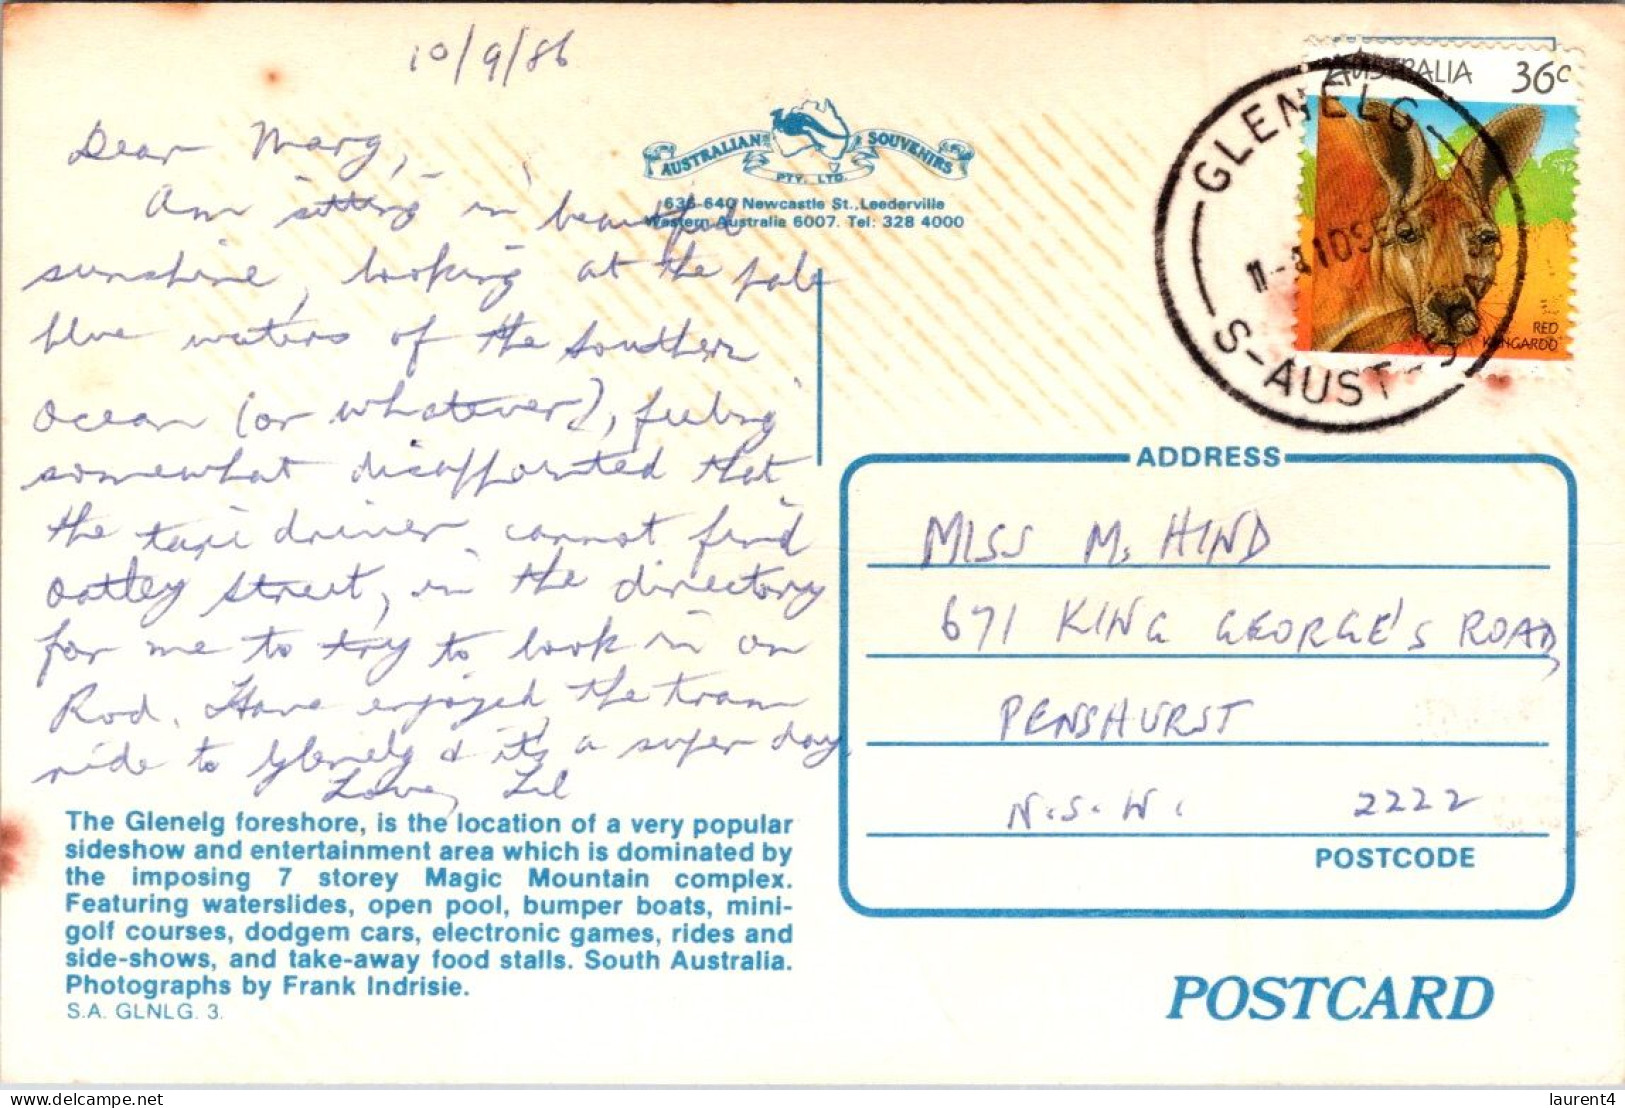 10/9/86
Dear Marg,
Am sitting in beautiful
sunshine, looking at the pale
blue waters of the Southern
Ocean (or whatever), feeling
somewhat disappointed that
the taxi driver cannot find
Oatley Street, in the directory
for me to try to look in on
Rod. Have enjoyed the tram
ride to Glenelg & it's a super day.
Love, Lil
AUSTRALIAN SOUVENIRS
PTY. LTD.
636-640 Newcastle St., Leederville
Western Australia 6007. Tel: 328 4000
AUSTRALIA 36c
RED
KANGAROO
GLENELG
10SE
S-AUST
ADDRESS
MISS M. HIND
671 KING GEORGE'S ROAD,
PENSHURST
N.S.W. 2222
POSTCODE
The Glenelg foreshore, is the location of a very popular
sideshow and entertainment area which is dominated by
the imposing 7 storey Magic Mountain complex.
Featuring waterslides, open pool, bumper boats, mini-
golf courses, dodgem cars, electronic games, rides and
side-shows, and take-away food stalls. South Australia.
Photographs by Frank Indrisie.
S.A. GLNLG. 3.
POSTCARD
delcampe.net
laurent4